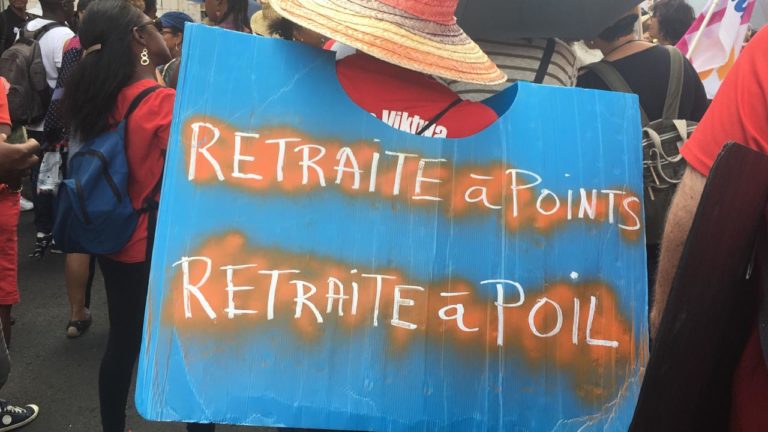 Viktwa
RETRAITE à POINTS
RETRAITE à POIL